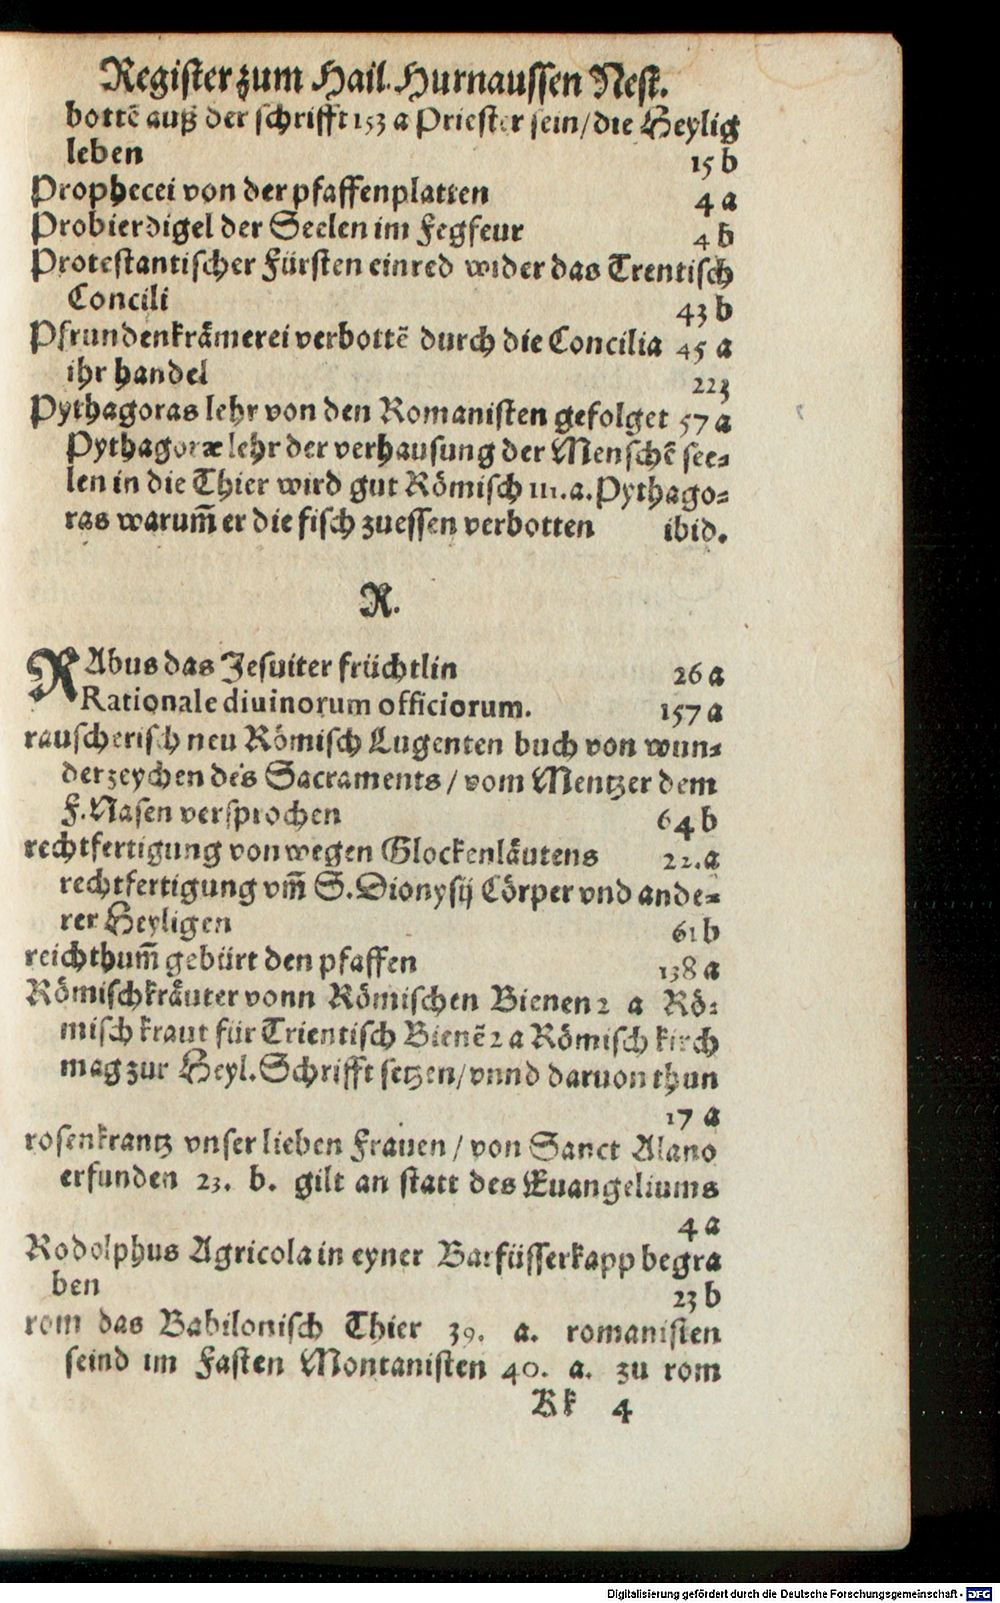 Register zum Hail. Hurnaussen Nest.
bottẽ auß der schrifft 153 a Priester sein/die Heylig
leben 15 b
Prophecei von der pfaffenplatten 4 a
Probierdigel der Seelen im Fegfeur 4 b
Protestantischer Fürsten einred wider das Trentisch
Concili 43 b
Pfrundenkrämerei verbottẽ durch die Concilia 45 a
ihr handel 223
Pythagoras lehr von den Romanisten gefolget 57 a
Pythagoræ lehr der verhausung der Menschẽ see-
len in die Thier wird gut Römisch 111. a. Pythago-
ras warum̃ er die fisch zuessen verbotten ibid.
R.
RAbus das Jesuiter früchtlin 26 a
Rationale diuinorum officiorum. 157 a
rauscherisch neu Römisch Lugenten buch von wun-
derzeychen des Sacraments / vom Mentzer dem
F. Nasen versprochen 64 b
rechtfertigung von wegen Glockenläutens 22. a
rechtfertigung vm̃ S. Dionysij Cörper vnd ande-
rer Heyligen 61 b
reichthum̃ gebürt den pfaffen 138 a
Römischkräuter vonn Römischen Bienen 2 a Rö-
misch kraut für Trientisch Bienẽ 2 a Römisch kirch
mag zur Heyl. Schrifft setzen/vnnd daruon thun
17 a
rosenkrantz vnser lieben Frauen / von Sanct Alano
erfunden 23. b. gilt an statt des Euangeliums
4 a
Rodolphus Agricola in eyner Barfüsserkapp begra
ben 23 b
rom das Babilonisch Thier 39. a. romanisten
seind im Fasten Montanisten 40. a. zu rom
Kk 4
Digitalisierung gefördert durch die Deutsche Forschungsgemeinschaft - DFG